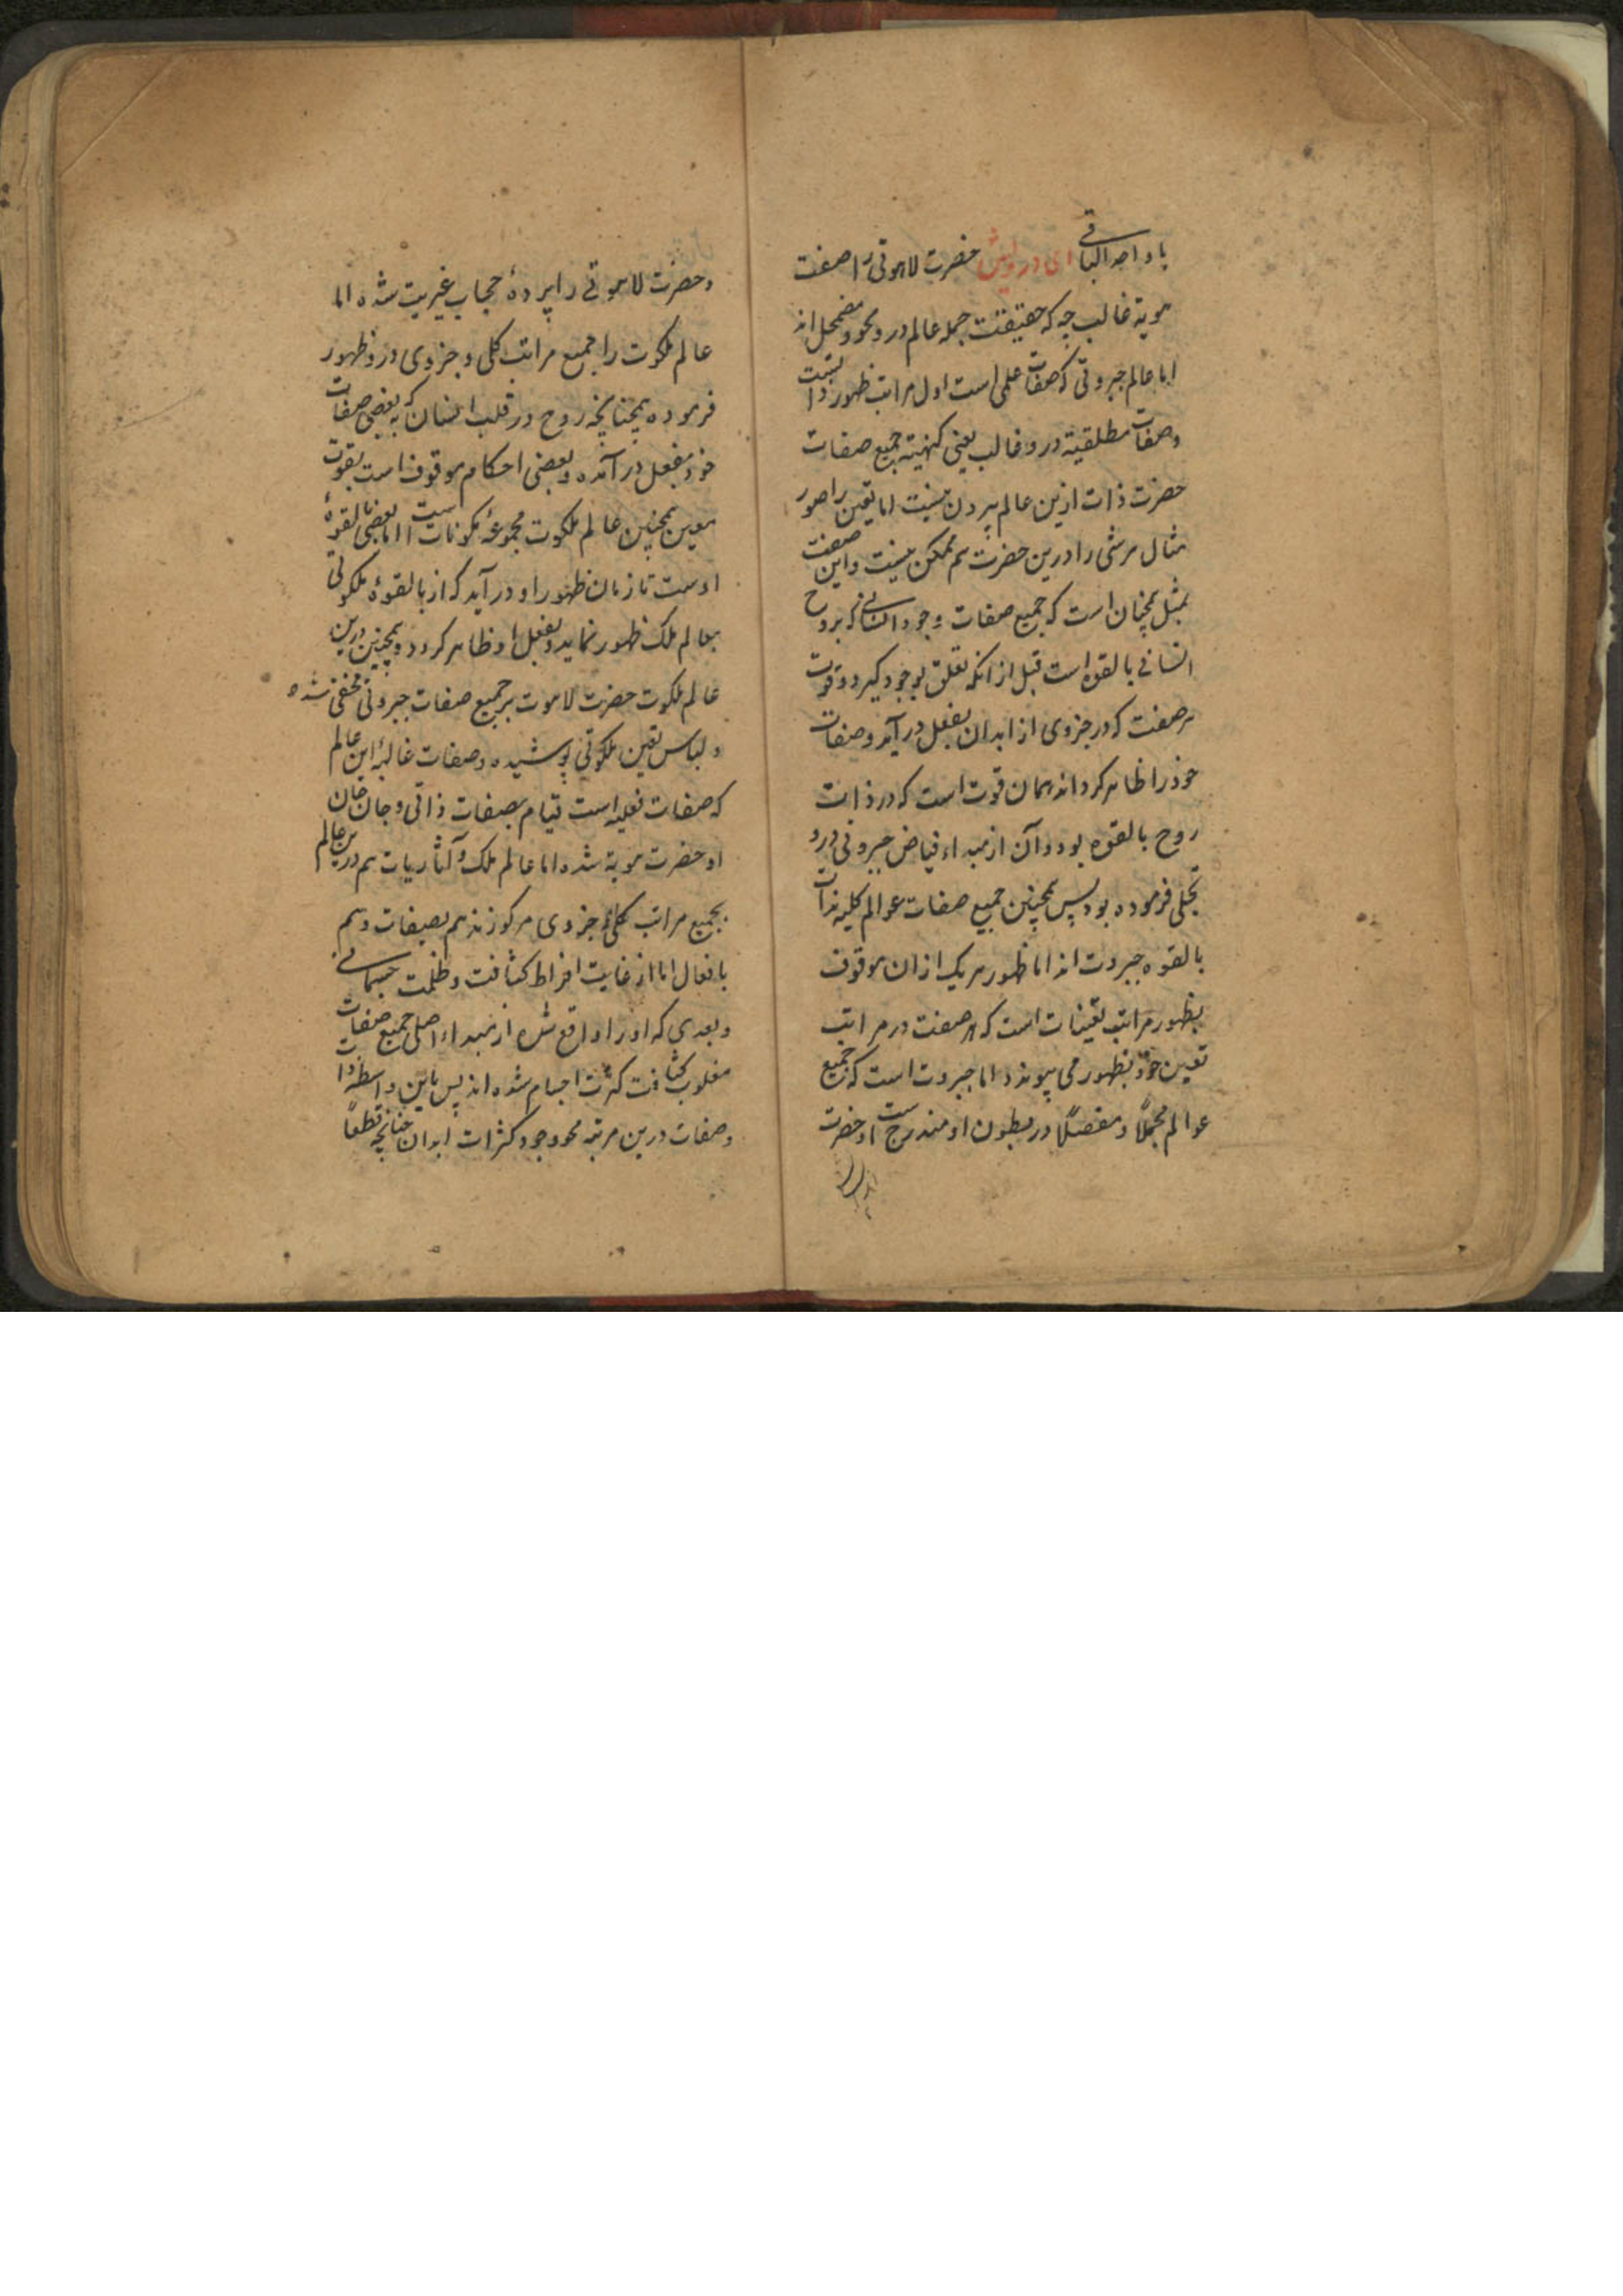 باد احد الباقی ای درویش حضرت لاهوتی را صفت
هویة غالب چه که حقیقت جمله عالم درو محو و مضمحل اند
اما عالم جبروتی که صفات علمی است اول مراتب ظهور ذات
وصفات مطلقیة درو غالب یعنی کنهیته جمیع صفات
حضرت ذات ازین عالم بیرون نیست اما تعین را صور
مثال هر شی را درین حضرت هم ممکن نیست و این صفت
بمثل همچنان است که جمیع صفات وجود انسانی که بروح
انسانی بالقوه است قبل از انکه تعلق بوجود گیرد و قوت
هر صفت که در جزوی از ابدان بفعل در آید و صفات
خود را ظاهر کرداند همان قوت است که در ذات
روح بالقوه بود و آن از مبداء فیاض جبروتی درو
تجلی فرموده بود پس همچنین جمیع صفات عوالم کلیه بذات
بالقوه جبروت اند اما ظهور هر یک ازان موقوف
بظهور مراتب تعینات است که هر صفت در مراتب
تعین خود بظهور می پیوندد اما جبروت است که جمیع
عوالم مجملاً و مفصلاً در بطون او مندرج است او حضرت
و حضرت لاهوتی را پردهٔ حجاب غیریت شده اما
عالم ملکوت را جمیع مراتب کلی و جزوی درو ظهور
فرموده همچنانچه روح در قلب انسان که به بعضی صفات
خود بفعل در آمده و بعضی احکام موقوف است بقوت
معین همچنین عالم ملکوت مجموعهٔ مکونات است اما بعضی بالقوهٔ
اوست تا زمان ظهور او در آید که از بالقوهٔ ملکوتی
بعالم ملک ظهور نماید و بفعل او ظاهر کردد و همچنین درین
عالم ملکوت حضرت لاهوت بر جمیع صفات جبروتی مخفی شده
و لباس تعین ملکوتی پوشیده و صفات غالبهٔ این عالم
که صفات فعلیه است قیام بصفات ذاتی و جان جان
او حضرت هویة شده اما عالم ملک و آثاریات هم درین عالم
بجمیع مراتب کلی و جزوی مرکوزند هم بصفات و هم
بافعال اما از غایت افراط کثافت و ظلمت جسمانی
و بعدی که او را واقع شده از مبداء اصلی جمیع صفات
مغلوب کثافت کثرت اجسام شده اند پس باین واسطه ذات
و صفات درین مرتبه محو وجود کثرات ابدان چنانچه قطعاً